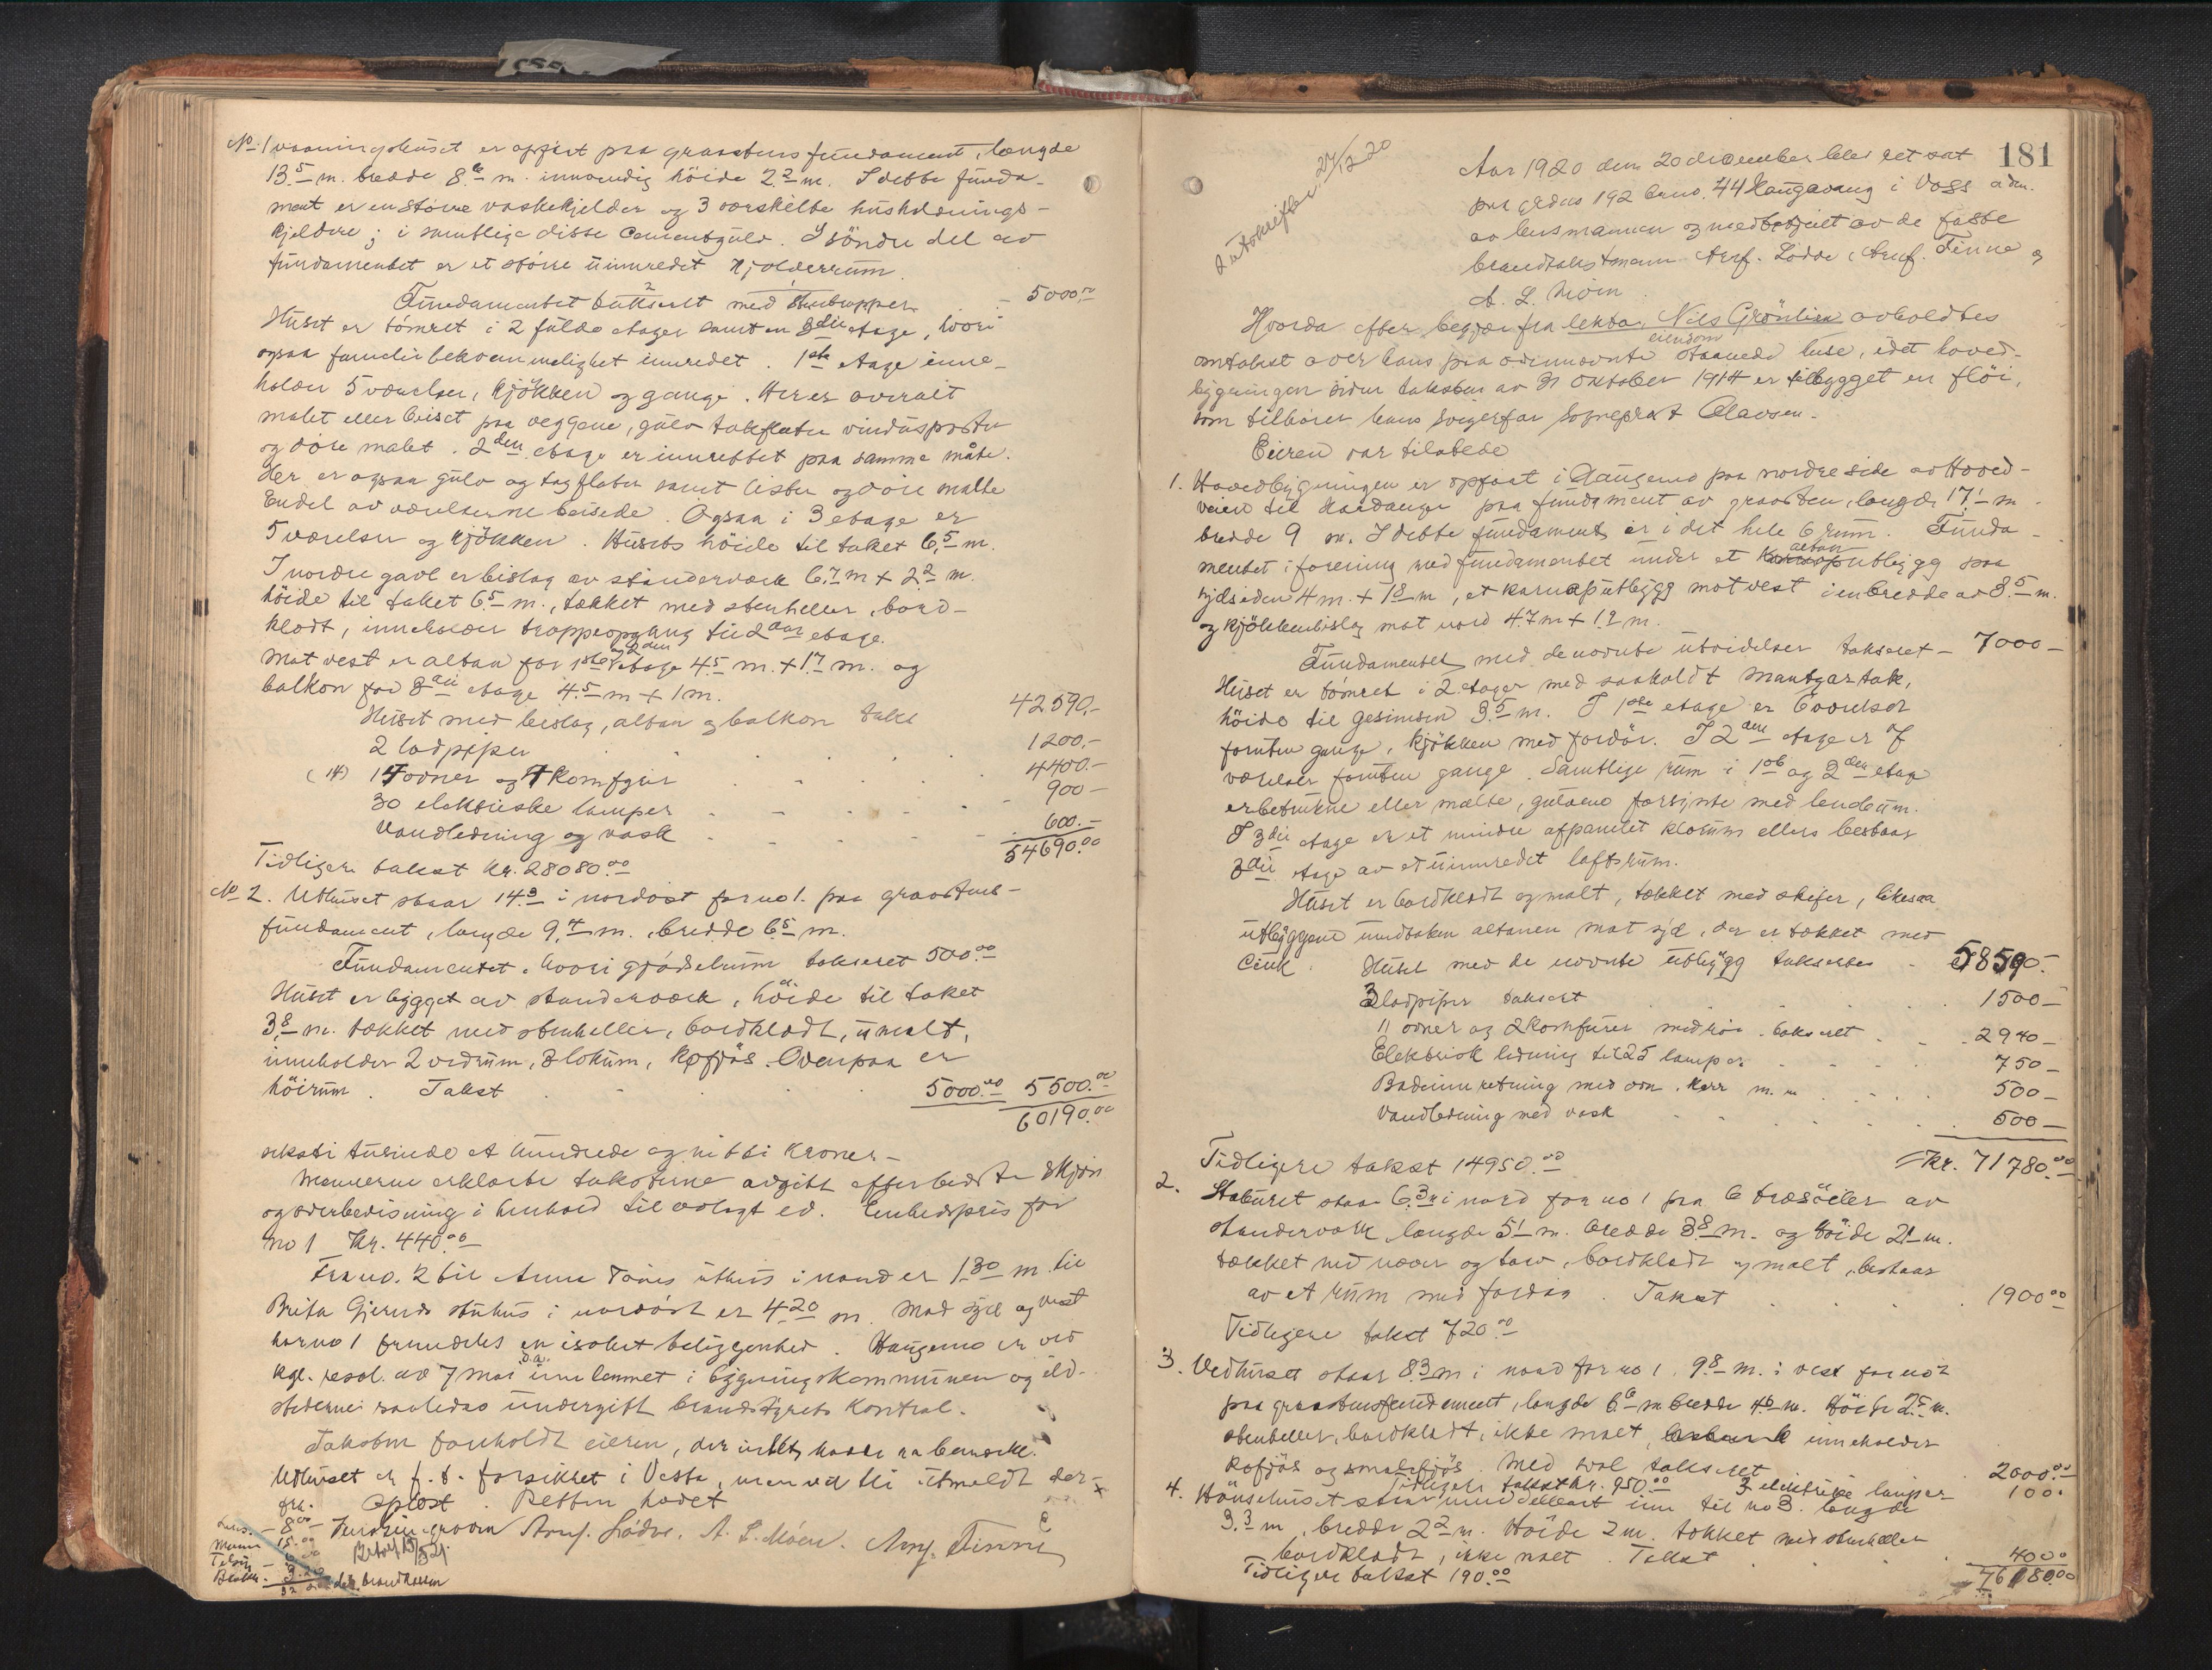 No 1 vaaningshuset er opført paa graastensfundament, længde
13.5 m. bredde 8.6 m. innvendig höide 2.2 m. I dette funda-
ment er en större vaskekjelder og 3 særskilte husholdnings-
kjeldere; i samtlige disse cementgulv. I söndre del av
fundamentet er et större uinnredet kjelderrum.
Fundamentet taksert med stentrapper - 5000.00
Huset er tömret i 2 fulde etager samt en 3die etage, hvori
ogsaa familiebekvemmelighet innredet. 1ste etage inne-
holder 5 værelser, kjökken og gange. Her er overalt
malet eller beiset paa veggene, gulv takflater vindusposter
og döre malet. 2den etage er innrettet paa samme måte.
Her er ogsaa gulv og tagflater samt lister og döre malte
Endel av værelserne beisede. Ogsaa i 3 etage er
5 værelser og kjökken. Husets höide til taket 6.5 m.
I nordre gavl er bislag av stenderverk 6.7 m + 2.2 m.
höide til taket 6.5 m., tækket med stenheller, bord-
klædt, inneholder trappeopgang til 2den etage.
Mot vest er altan for 1ste og 2den etage 4.5 m. + 1.7 m. og
balkon for 3die etage 4.5 m + 1 m.
Huset med beslag, altan og balkon takt 42590.-
2 ladpiper 1200.-
(14) 14 ovner og 4 komfyrer 4400.-
30 elektriske lamper 900 -
Vandledning og vask 600.-
54690.00
Tidligere takst kr. 28080.00
No 2. Uthuset staar 14.3 i nordöst for no 1. paa graastens-
fundament, længde 9.4 m., bredde 6.5 m.
Fundamentet, hvori gjödselrum taksert 500.00
Huset er bygget av stenderverk, höide til taket
3.8 m. tækket med stenheller, bordklædt, umalt,
inneholder 2 vedrum, 3 lokum, kofjös. Ovenpaa er
höirum. Takst 5000.00 5500.00
60190.00
seksti tusinde et hundrede og nitti kroner -
Mennerne erklærte taksterne avgitt efter bedste skjön
og overbevisning i henhold til avlagt ed. Enhetspris for
no 1 Kr. 440.00
Fra no. 2 til Anna Tönes uthus i nord er 1.30 m til
Brita Gjernes stuhus i nordöst er 4.20 m. Mod syd og vest
har no 1 fremdeles en isolert beliggenhed. Haugamo er ved
kgl. resol. av 7 mai d.a. innlemmet i bygningskommunen og ild-
stederne saaledes undergitt brandstyrets kontrol.
Taksten forholdt eieren, der intet hadde aa bemerke.
Uthuset er f. t. forsikret i Vesta, men vil bli utmeldt der-
fra. Oplæst. Retten hævet
Arnf. Lödve. A. L. Möen. Arnf. Finne
Lens. - 8.00
Menn 15.00
181
Utskrift 27/12 20
Aar 1920 den 20 december blev ret sat
paa gaarden 192 bruno. 44 Haugavang i Voss adm.
av lensmannen og medbetjent av de faste
brandtakstmenn Arnf. Lödve, Arnf. Finne og
A. L. Möen.
Hvorda efter begjær fra lektor Nils Grönlien avholdtes
omtakst over hans paa ovennevnte eiendom staaende huse, idet hoved-
bygningen siden taksten av 31 oktober 1914 er tilbygget en flöi,
som tilhörer hans svigerfar sogneprest Olavsen.
Eieren var tilstede
1. Hovedbygningen er opfört i Haugamo paa nordre side av Hoved-
veien til Hardanger paa fundament av graasten, længde 17.1 m
bredde 9 m. I dette fundament er i det hele 6 rum. Funda-
mentet i forening med fundamentet under et altan utbygg paa
sydsiden 4 m. + 1.8 m, et karnaputbygg mot vest i en bredde av 3.5 m.
og kjökkenbislag mot nord 4.7 m + 1.2 m.
Fundamentet med de nevnte utvidelser taksert - 7000 -
Huset er tömret i 2 etager med saakaldt mansartak,
höide til gesimsen 3.5 m. I 1ste etage er 6 værelser
foruten gange, kjökken med fordör. I 2den etage er 7
værelser foruten gange. Samtlige rum i 1ste og 2den etage
er betrukne eller malte, gulvene forsynte med lenoleum.
I 3die etage er et mindre afpanelet klærum ellers bestaar
3die etage av et uinnredet loftsrum.
Huset er bordklædt og malt, tækket med skifer, likesaa
utbyggene undtaken altanen mot syd, der er tækket med
cink. Huset med de nevnte utbygg takseres - 58590.-
3 ladpiper taksert 1500 -
11 ovner og 2 komfurer med rör taksert 2940 -
Elektrisk ledning til 25 lamper 750 -
Badeinnretning med ovn, karr m. m 500 -
Vandledning med vask 500 -
Tidligere takst 14950.00 kr. 71780.00
2. Staburet staar 6.3 m i nord for no 1 paa 6 træsöiler av
stenderverk længde 5.1 m. bredde 3.8 m. og höide 2.1 m.
tækket med never og torv, bordklædt og malt, bestaar
av et rum med fordör. Takst 1900.00
Tidligere takst 720.00
3. Vedhuset staar 8.3 m i nord for no 1, 9.8 m. i vest for no 2
paa graastensfundament, længde 6.6 m bredde 4.6 m. Höide 2.5 m.
stenheller, bordklædt, ikke malt, inneholder
kofjös og smalefjös. Med hval taksert 2000.00
Tidligere takst kr. 950.00 3 elektriske lamper 100.
4. Hönsehuset staar umiddelbart inn til no 3. længde
3.3 m, bredde 2.2 m. Höide 2 m. tækket med stenheller
bordklædt, ikke malt. Takst 400.
Tidligere takst 190.00 76180.00